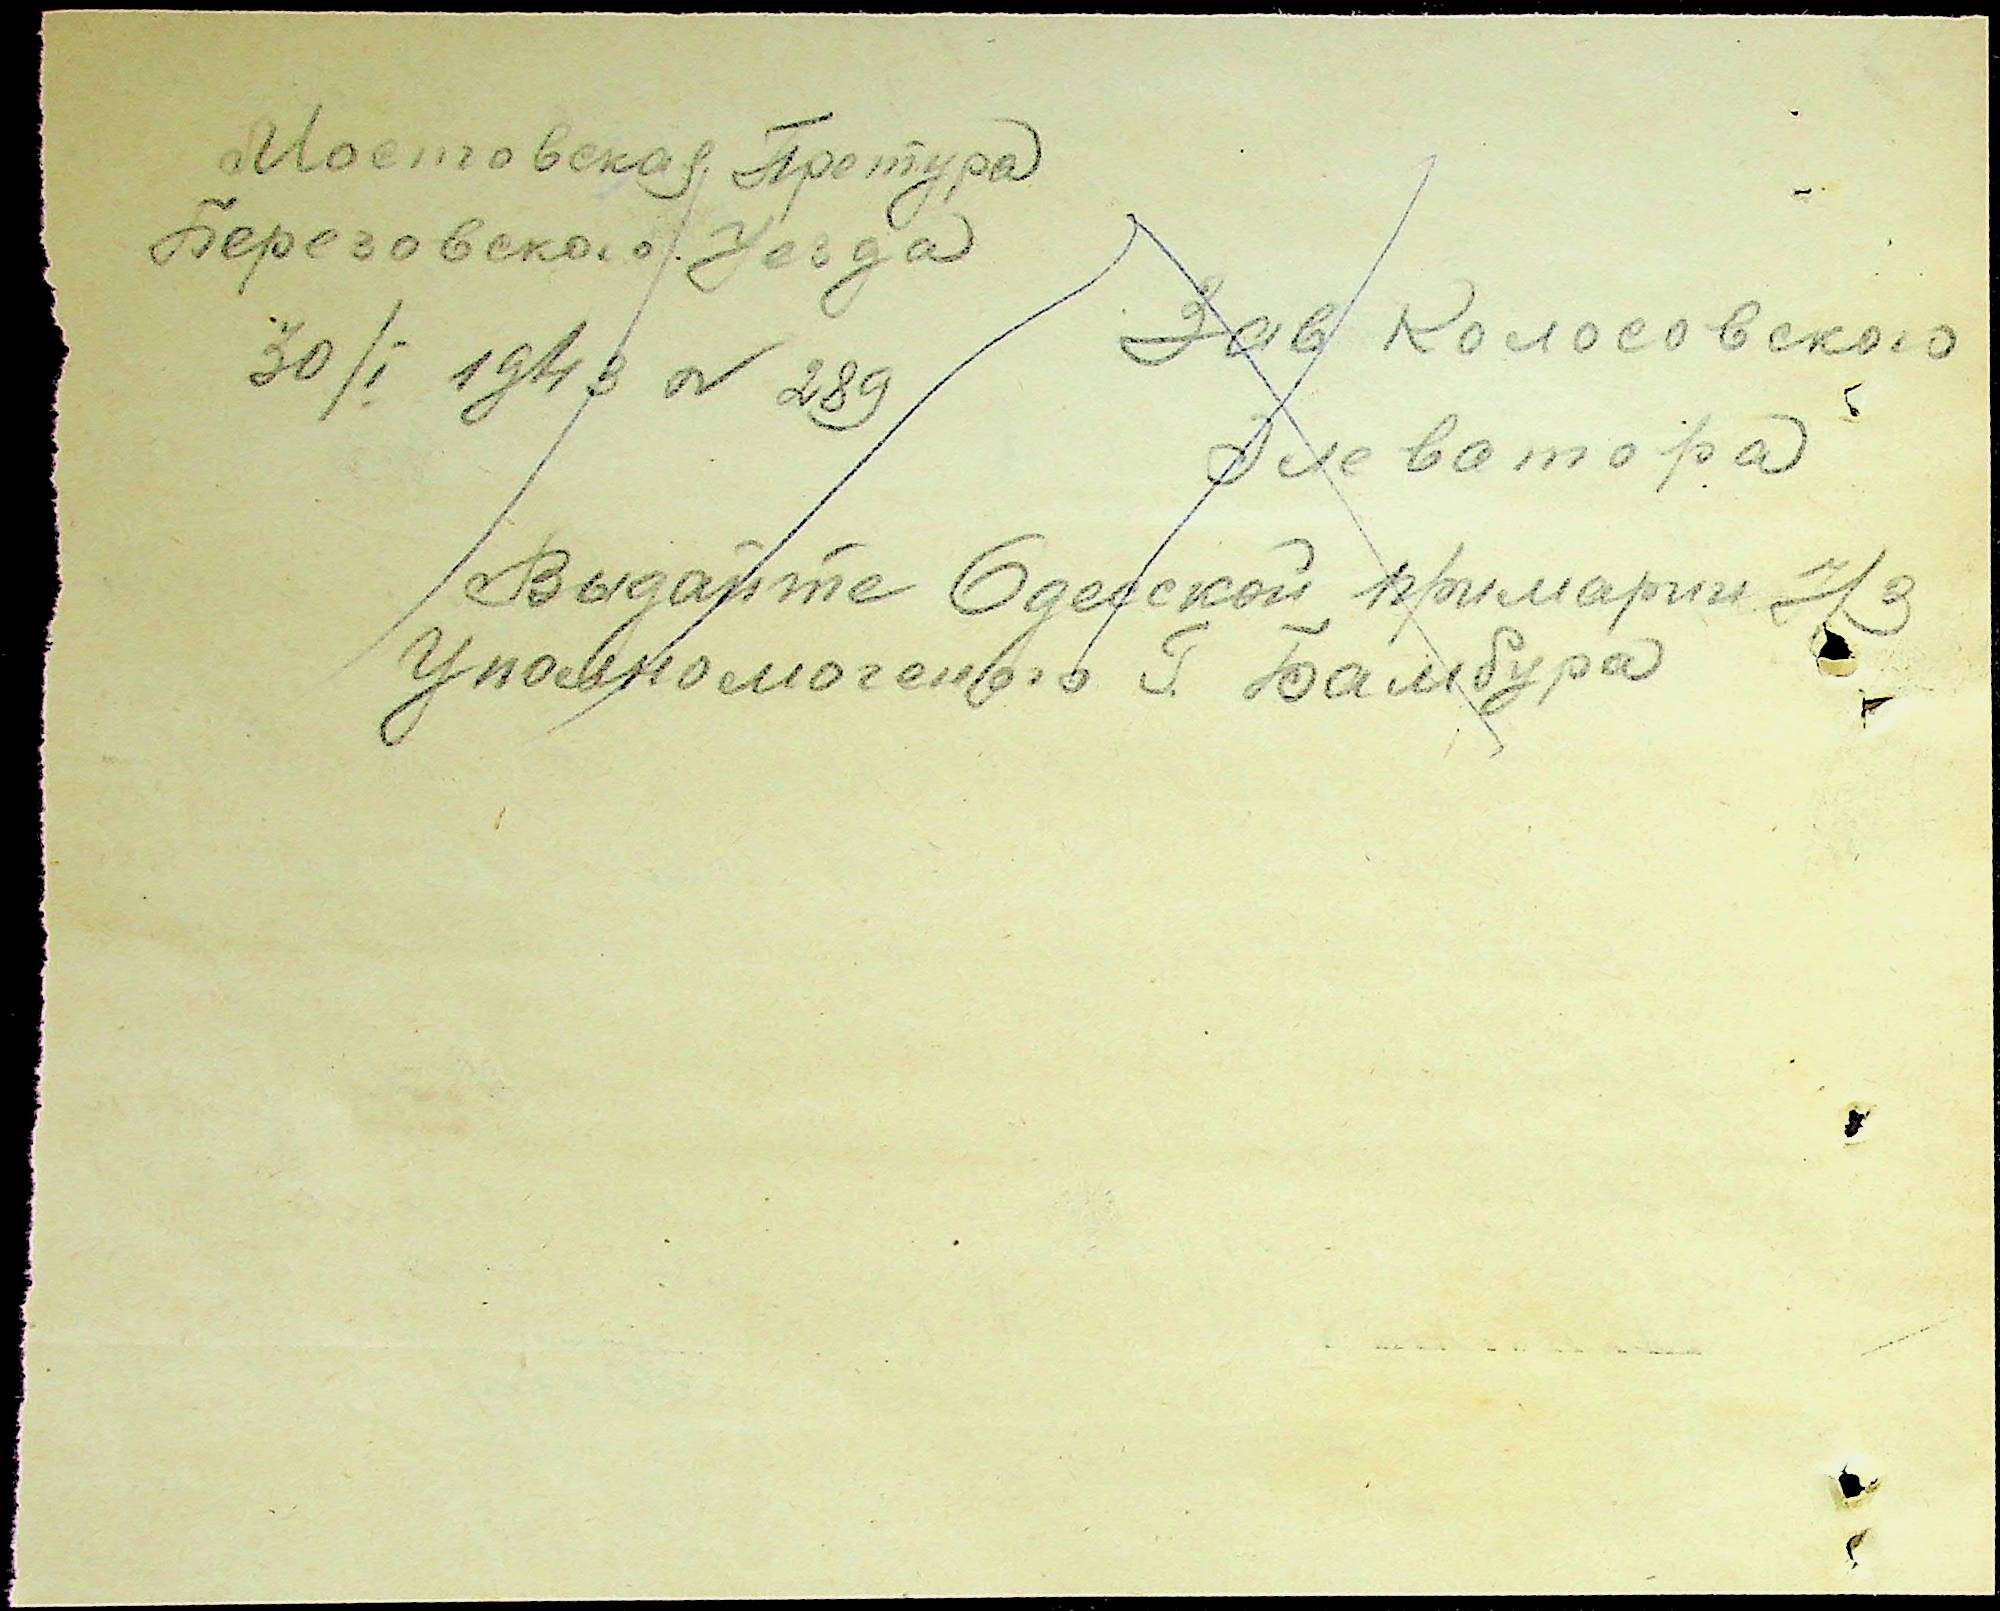 Мостовская Претура
Березовского Уезда
30/I 1943 N 289
Зав Колосовского
Элеватора
Выдайте Одесской примарии Ч/З
Уполномоченого Г. Бамбура